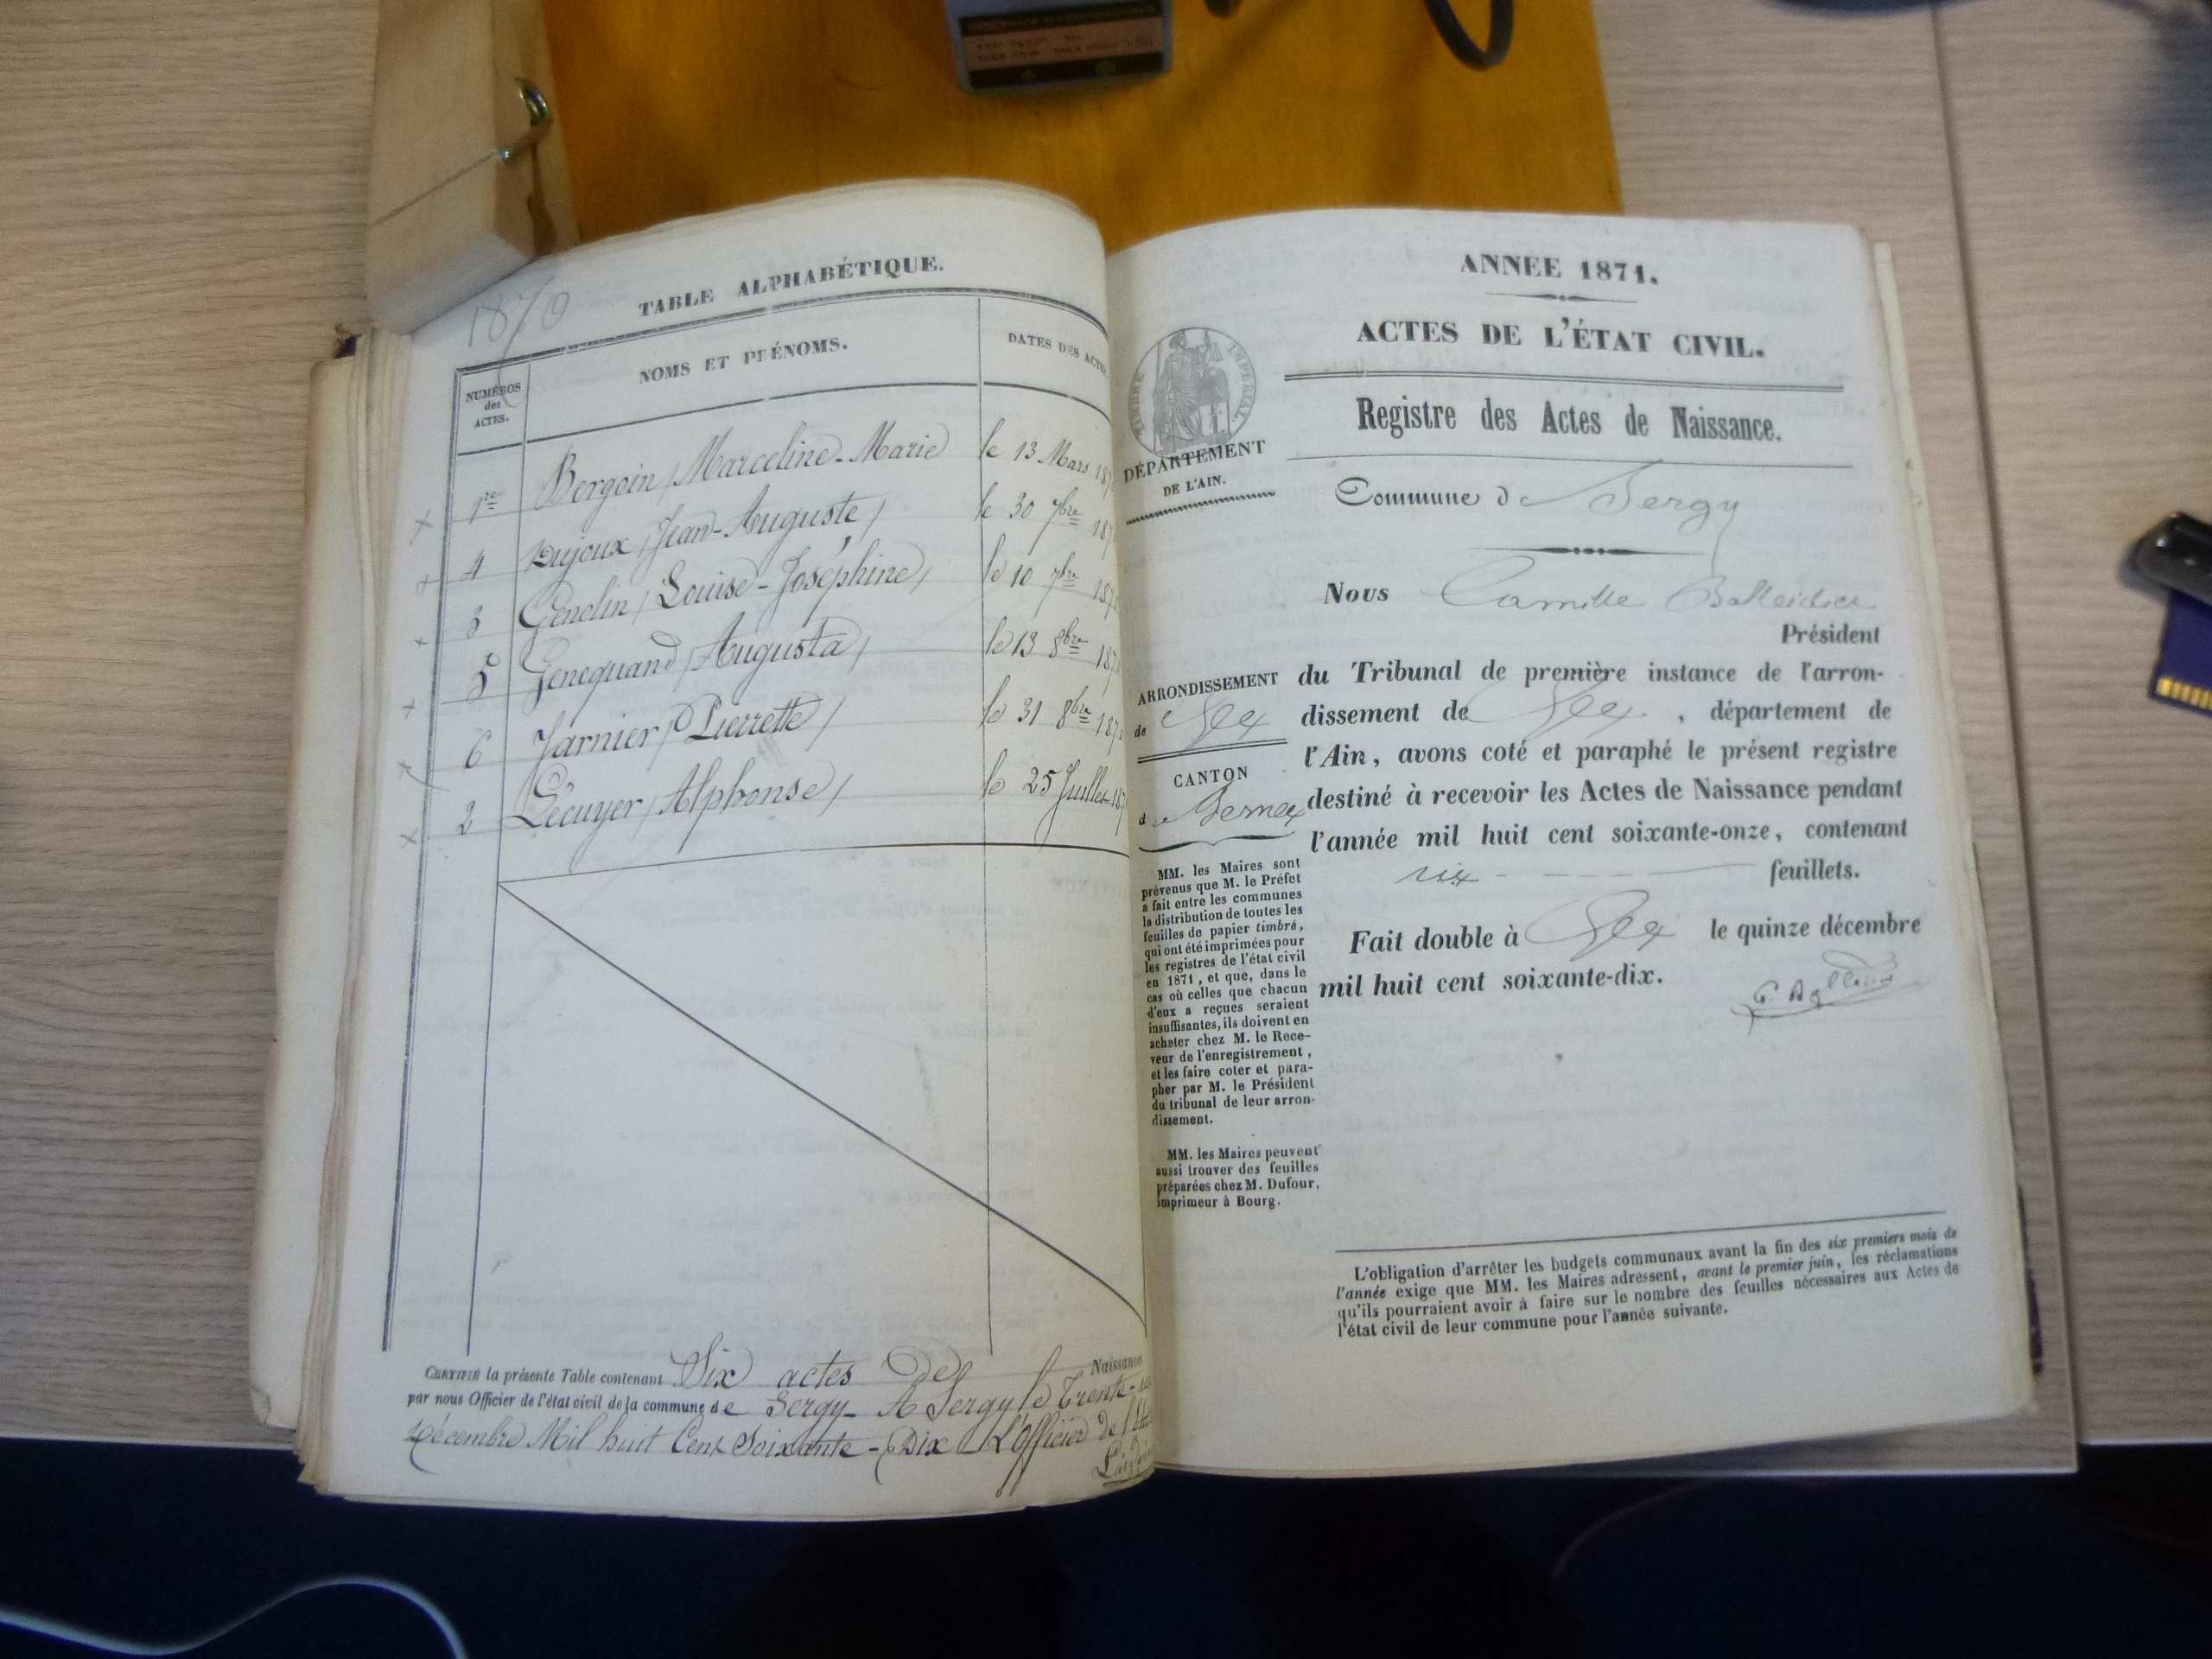 1870
TABLE ALPHABÉTIQUE.
NUMÉROS
des
ACTES.
NOMS ET PRÉNOMS.
DATES DES ACTES
1re Bergoin / Marceline-Marie le 13 Mars 187
4 Dujoux / Jean-Auguste / le 30 7bre 187
3 Gendin / Louise-Joséphine / le 10 7bre 187
5 Genequand / Augusta / le 13 8bre 187
6 Jarnier / Pierrette / le 31 8bre 187
2 Lécuyer / Alphonse / le 25 Juillet 187
CERTIFIÉ la présente Table contenant Six actes De Naissances
par nous Officier de l'état civil de la commune de Sergy - A Sergy le Trente-un
Décembre Mil huit Cent Soixante-Dix L'Officier de l'Etat
ANNÉE 1871.
ACTES DE L'ÉTAT CIVIL.
Registre des Actes de Naissance.
TIMBRE IMPÉRIAL
DÉPARTEMENT
DE L'AIN.
Commune de Sergy
Nous Camille Balleidier
Président
du Tribunal de première instance de l'arron-
dissement de Gex, département de
l'Ain, avons coté et paraphé le présent registre
destiné à recevoir les Actes de Naissance pendant
l'année mil huit cent soixante-onze, contenant
six feuillets.
Fait double à Gex le quinze décembre
mil huit cent soixante-dix.
ARRONDISSEMENT
de Gex
CANTON
de Fernex
MM. les Maires sont
prévenus que M. le Préfet
a fait entre les communes
la distribution de toutes les
feuilles de papier timbré,
qui ont été imprimées pour
les registres de l'état civil
en 1871, et que, dans le
cas où celles que chacun
d'eux a reçues seraient
insuffisantes, ils doivent en
acheter chez M. le Rece-
veur de l'enregistrement,
et les faire coter et para-
pher par M. le Président
du tribunal de leur arron-
dissement.
MM. les Maires peuvent
aussi trouver des feuilles
préparées chez M. Dufour,
imprimeur à Bourg.
L'obligation d'arrêter les budgets communaux avant la fin des six premiers mois de
l'année exige que MM. les Maires adressent, avant le premier juin, les réclamations
qu'ils pourraient avoir à faire sur le nombre des feuilles nécessaires aux Actes de
l'état civil de leur commune pour l'année suivante.